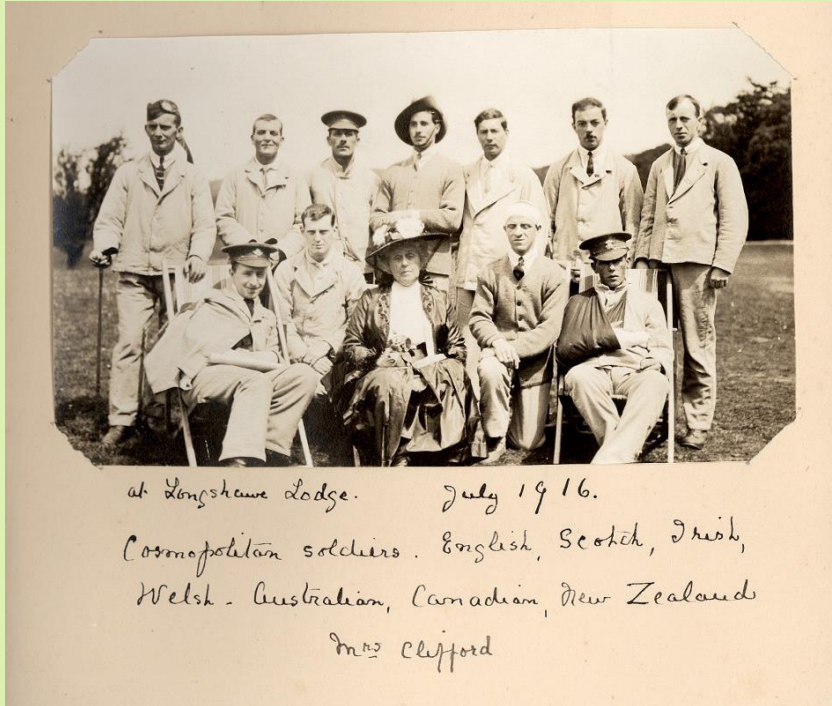 at Longshawe Lodge. July 1916.
Cosmopolitan soldiers. English, Scotch, Irish,
Welsh - Australian, Canadian, New Zealand
Mrs Clifford